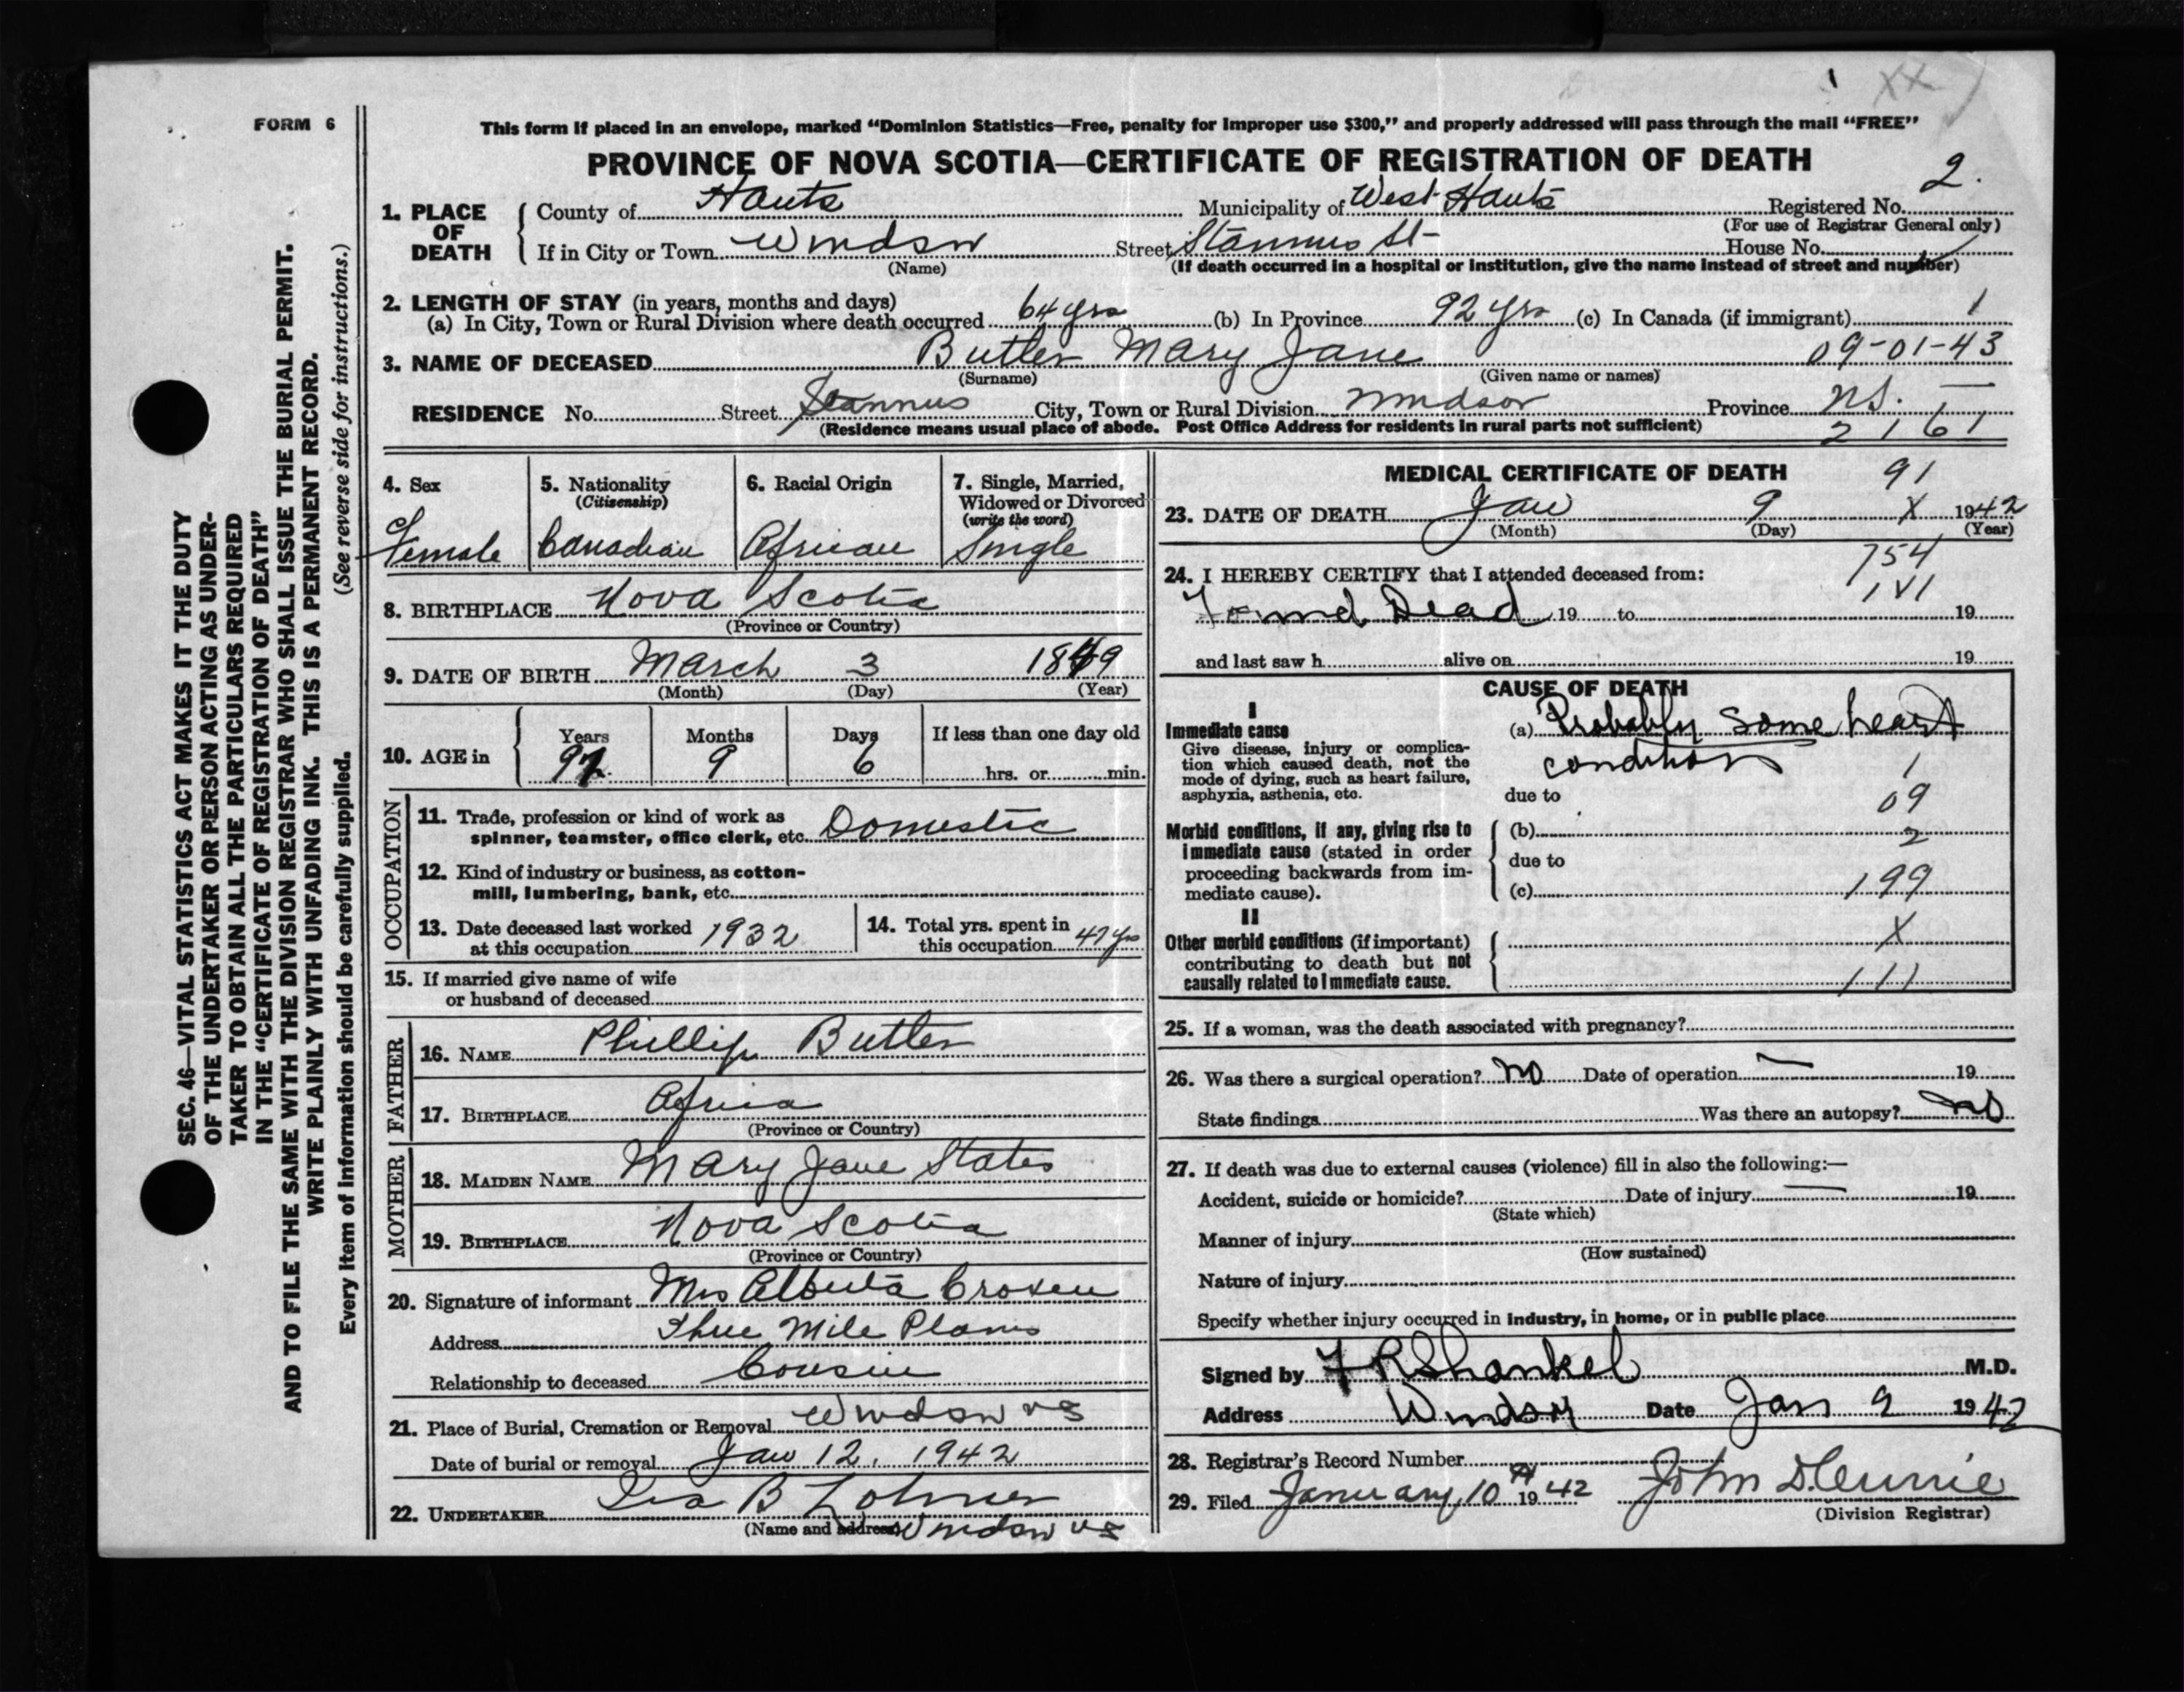 FORM 6
This form if placed in an envelope, marked “Dominion Statistics—Free, penalty for improper use $300,” and properly addressed will pass through the mail “FREE”
PROVINCE OF NOVA SCOTIA—CERTIFICATE OF REGISTRATION OF DEATH
SEC. 46—VITAL STATISTICS ACT MAKES IT THE DUTY
OF THE UNDERTAKER OR PERSON ACTING AS UNDER-
TAKER TO OBTAIN ALL THE PARTICULARS REQUIRED
IN THE “CERTIFICATE OF REGISTRATION OF DEATH”
AND TO FILE THE SAME WITH THE DIVISION REGISTRAR WHO SHALL ISSUE THE BURIAL PERMIT.
WRITE PLAINLY WITH UNFADING INK. THIS IS A PERMANENT RECORD.
Every item of information should be carefully supplied. (See reverse side for instructions.)
1. PLACE OF DEATH
County of Hants Municipality of West Hants Registered No. 2.
(For use of Registrar General only)
If in City or Town Windsor Street Stannus St House No.
(Name) (If death occurred in a hospital or institution, give the name instead of street and number)
2. LENGTH OF STAY (in years, months and days)
(a) In City, Town or Rural Division where death occurred 64 yrs (b) In Province 92 yrs (c) In Canada (if immigrant) 1
3. NAME OF DECEASED Butler Mary Jane 09-01-43
(Surname) (Given name or names)
RESIDENCE No. Street Stannus City, Town or Rural Division Windsor Province N.S.
(Residence means usual place of abode. Post Office Address for residents in rural parts not sufficient) 2161
4. Sex
Female
5. Nationality
(Citizenship)
Canadian
6. Racial Origin
African
7. Single, Married,
Widowed or Divorced
(write the word)
Single
8. BIRTHPLACE Nova Scotia
(Province or Country)
9. DATE OF BIRTH March 3 1849
(Month) (Day) (Year)
10. AGE in
Years Months Days If less than one day old
9 6 hrs. or min.
OCCUPATION
11. Trade, profession or kind of work as
spinner, teamster, office clerk, etc. Domestic
12. Kind of industry or business, as cotton-
mill, lumbering, bank, etc.
13. Date deceased last worked
at this occupation 1932
14. Total yrs. spent in
this occupation 47 yrs
15. If married give name of wife
or husband of deceased
FATHER
16. NAME Phillip Butler
17. BIRTHPLACE Africa
(Province or Country)
MOTHER
18. MAIDEN NAME Mary Jane States
19. BIRTHPLACE Nova Scotia
(Province or Country)
20. Signature of informant Mrs Alberta Croxen
Address Three Mile Plains
Relationship to deceased Cousin
21. Place of Burial, Cremation or Removal Windsor NS
Date of burial or removal Jan 12, 1942
22. UNDERTAKER Ira B Lohnes
(Name and address) Windsor NS
MEDICAL CERTIFICATE OF DEATH 91
23. DATE OF DEATH Jan 9 X 1942
(Month) (Day) (Year)
754
24. I HEREBY CERTIFY that I attended deceased from:
Found Dead 19 to 19
and last saw h alive on 19
CAUSE OF DEATH
I
Immediate cause
Give disease, injury or complica-
tion which caused death, not the
mode of dying, such as heart failure,
asphyxia, asthenia, etc.
(a) Probably some heart
condition 1
due to 09
Morbid conditions, if any, giving rise to
immediate cause (stated in order
proceeding backwards from im-
mediate cause).
(b) 2
due to
(c) 199
II
Other morbid conditions (if important)
contributing to death but not
causally related to immediate cause.
X
111
25. If a woman, was the death associated with pregnancy?
26. Was there a surgical operation? No Date of operation — 19
State findings Was there an autopsy? No
27. If death was due to external causes (violence) fill in also the following:—
Accident, suicide or homicide? Date of injury — 19
(State which)
Manner of injury
(How sustained)
Nature of injury
Specify whether injury occurred in industry, in home, or in public place
Signed by F R Shankel M.D.
Address Windsor Date Jan 9 1942
28. Registrar's Record Number
29. Filed January 10 1942 John D.
(Division Registrar)